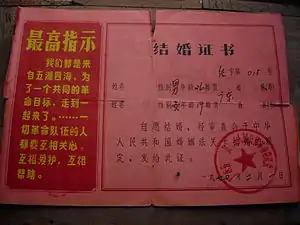 最高指示
我们都是来
自五湖四海，为
了一个共同的革
命目标，走到一
起来了。……一
切革命队伍的人
都要互相关心，
互相爱护，互相
帮助。
结婚证书
字第 015 号
姓名 性别男年龄26
姓名 性别女年龄19
自愿结婚，经审查合于中华
人民共和国婚姻法关于结婚的规
定，发给此证。
一九七〇年二月